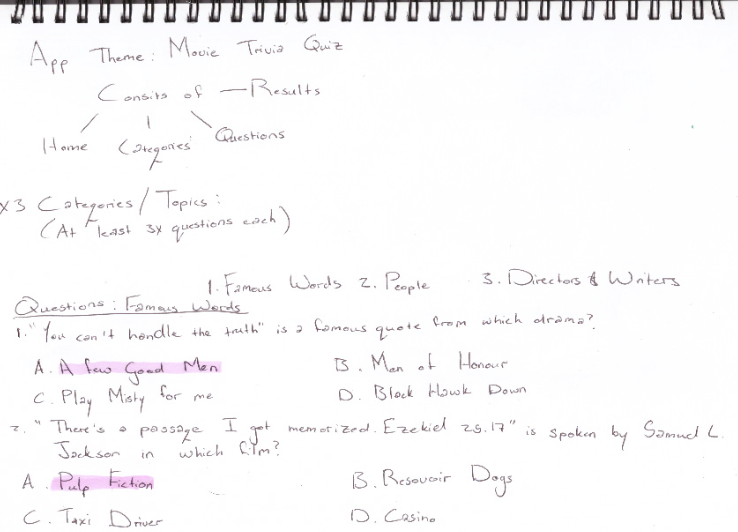 App Theme: Movie Trivia Quiz
Consits of — Results
Home Categories Questions
x3 Categories / Topics:
(At least 3x questions each)
1. Famous Words 2. People 3. Directors & Writers
Questions: Famous Words
1. "You can't handle the truth" is a famous quote from which drama?
A. A few Good Men B. Men of Honour
C. Play Misty for me D. Black Hawk Down
2. "There's a passage I got memorized. Ezekiel 25.17" is spoken by Samuel L.
Jackson in which film?
A. Pulp Fiction B. Resovoir Dogs
C. Taxi Driver D. Casino